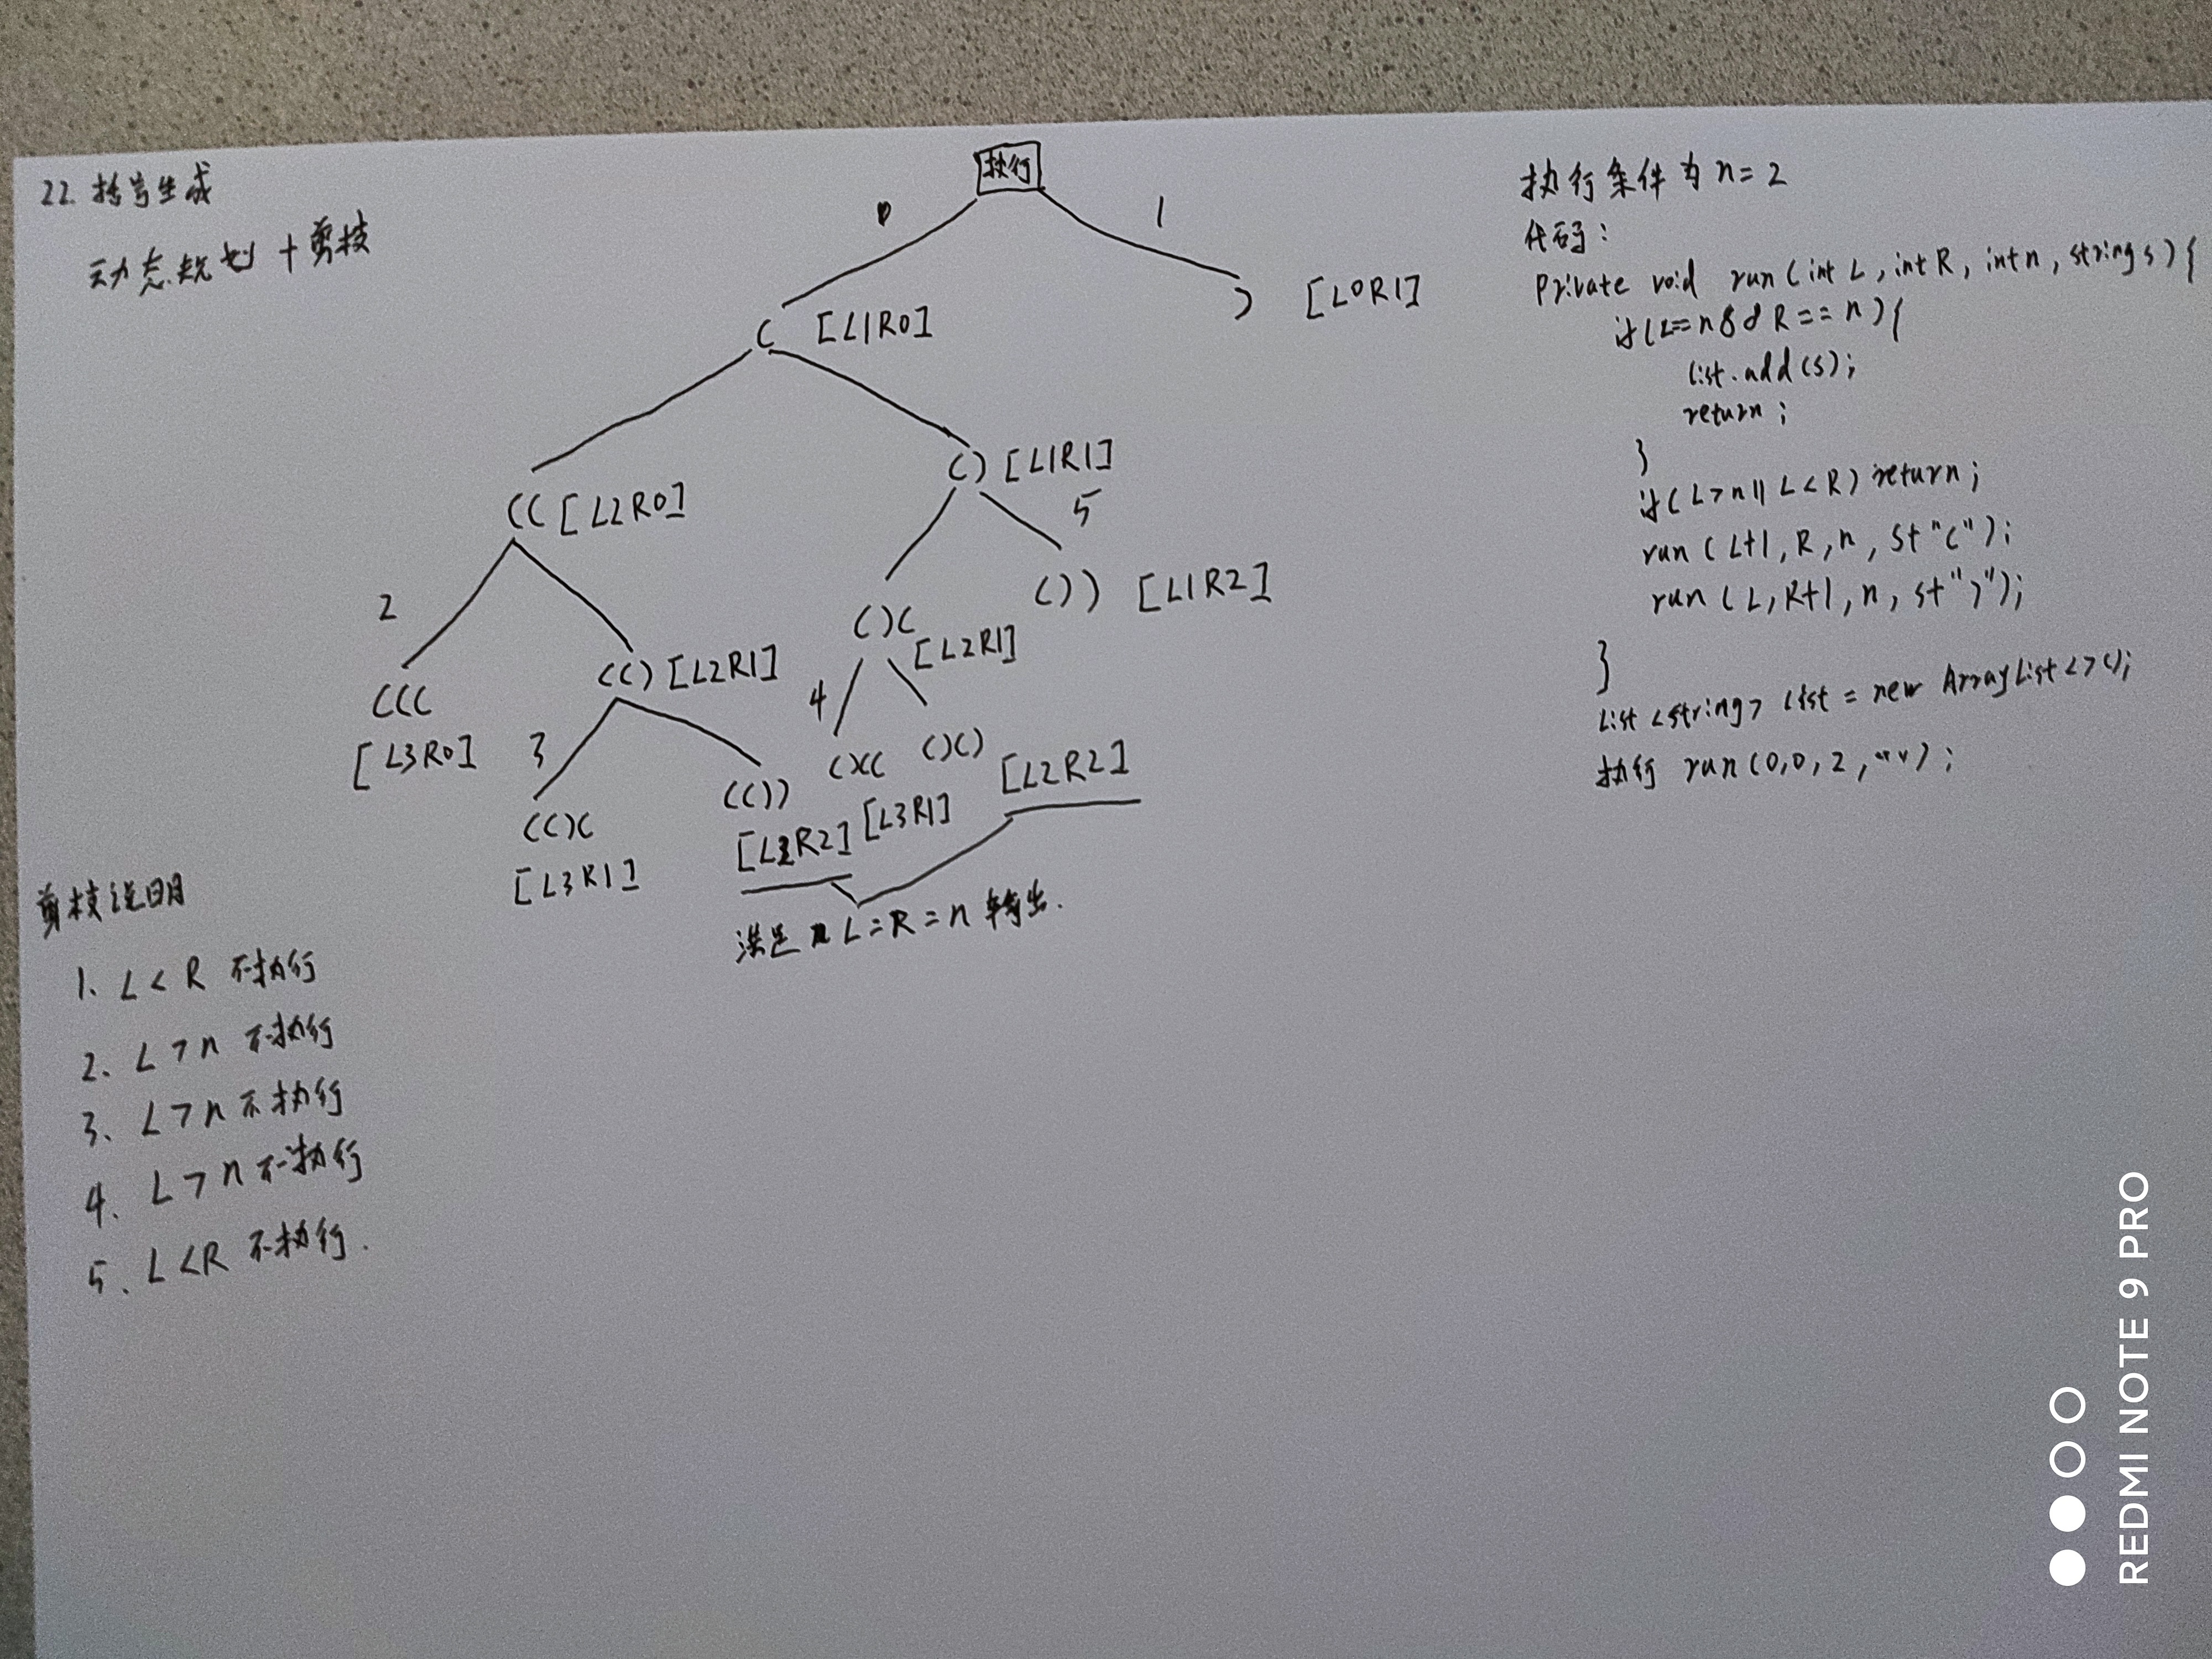 22. 括号生成
动态规划 + 剪枝
执行
0
1
( [L1R0]
) [L0R1]
(( [L2R0]
() [L1R1]
5
2
()( [L2R1]
()) [L1R2]
((( [L3R0]
(() [L2R1]
4
3
(()( [L3R1]
(()) [L2R2]
()(( [L3R1]
()() [L2R2]
满足 L=R=n 输出.
剪枝说明
1. L < R 不执行
2. L > n 不执行
3. L > n 不执行
4. L > n 不执行
5. L < R 不执行.
执行条件为 n = 2
代码:
Private void run(int L, int R, int n, string s){
if(L==n && R==n){
list.add(s);
return;
}
if(L>n || L<R) return;
run(L+1, R, n, s+"(");
run(L, R+1, n, s+")");
}
List<string> list = new ArrayList<>();
执行 run(0,0,2,"");
REDMI NOTE 9 PRO